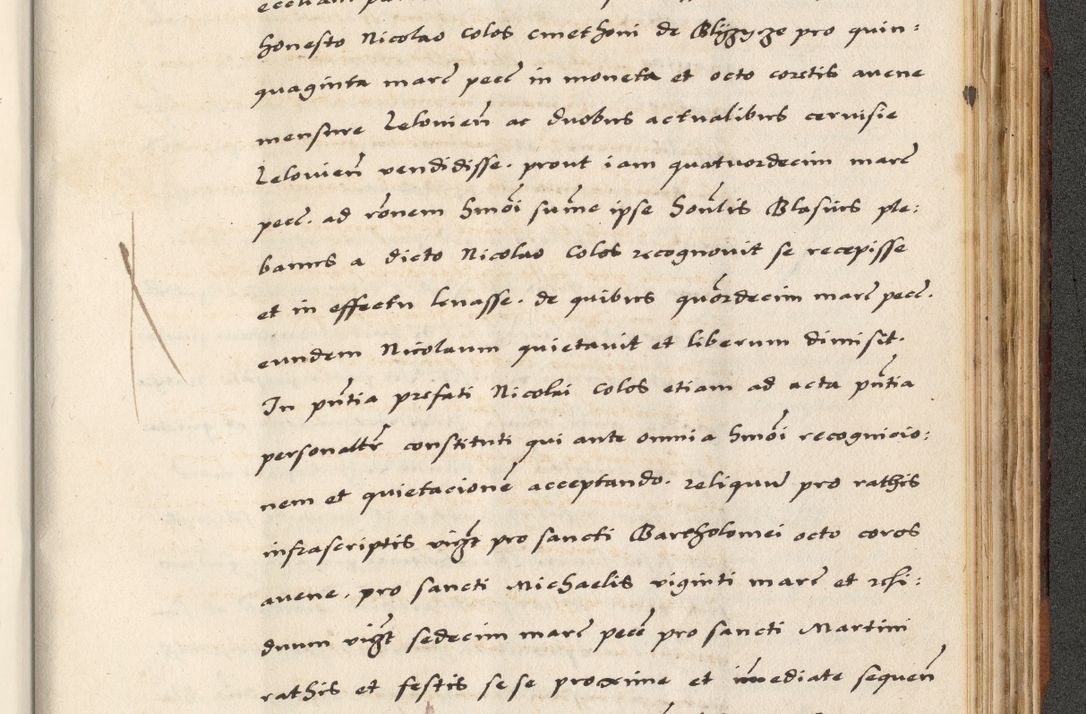 honesto Nicolao Colos cmethoni de Blyzyze pro quin:
quaginta marc̄ pecc̄ in moneta et octo coretis avene
mensure Lelovien̄ ac duobus actualibus cervisie
Lelovien̄ vendidisse. prout iam quatuordecim marc̄
pecc̄. ad rōnem hmōi sum̄e ipse honr̄lis Blasius ple:
banus a dicto Nicolao Colos recognovit se recepisse
et in effectu levasse. de quibus quōrdecim marc̄ pecc̄.
eundem Nicolaum quietavit et liberum dimisit.
In pn̄tia prefati Nicolai Colos etiam ad acta pn̄tia
personalitr̄ constituti qui ante omnia hmōi recognicio:
nem et quietacionē acceptando. reliquū pro rathis
infrascriptis vigt̄ pro sancti Bartholomei octo coros
avene. pro sancti Michaelis viginti marc̄ et resi:
duum vigt̄ sedecim marc̄ pecc̄ pro sancti Martini
rathis et festis sese proxime et im̄ediate sequen̄